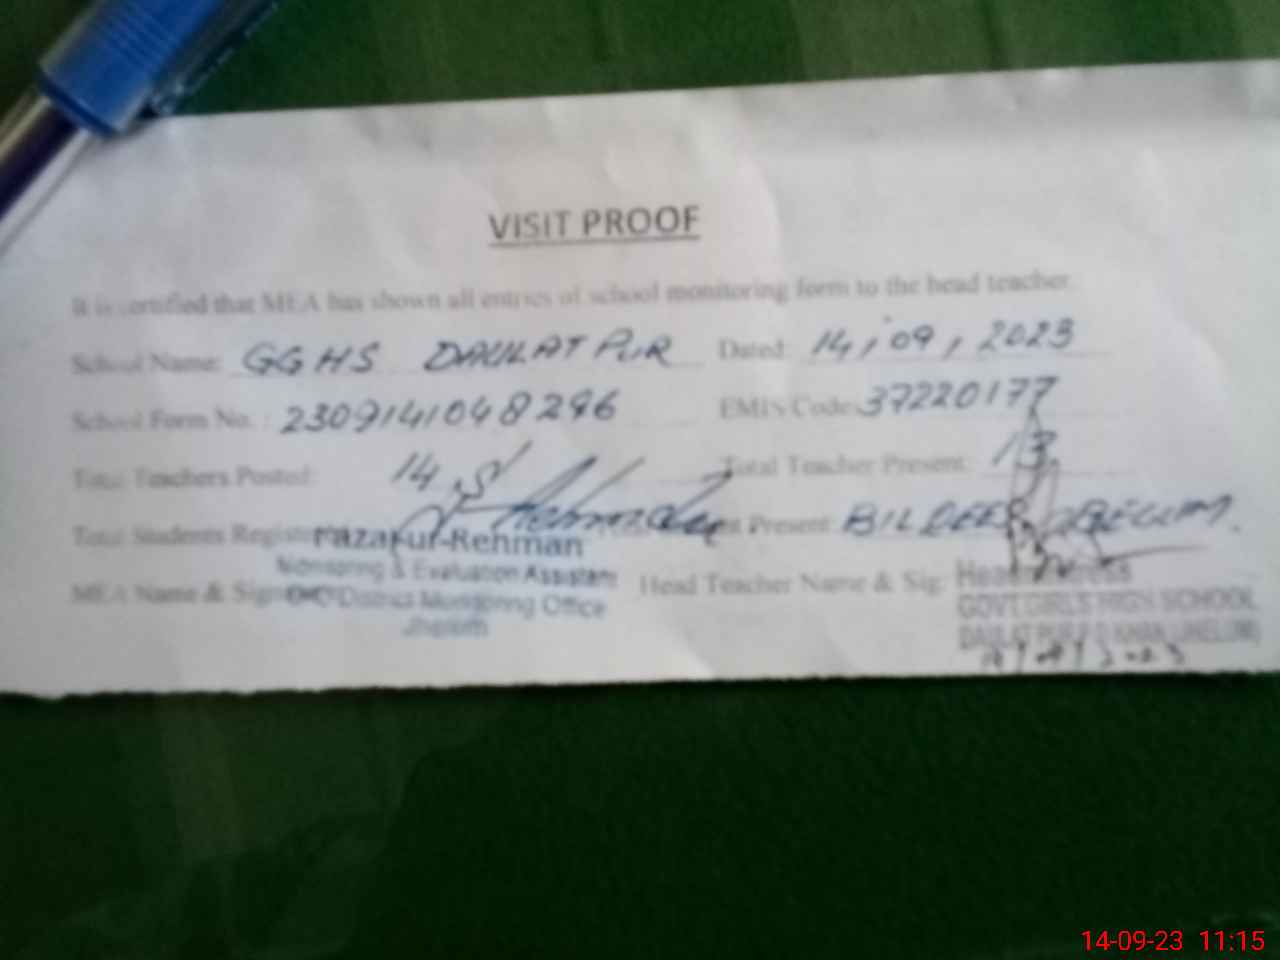 VISIT PROOF
It is certified that MEA has shown all entries of school monitoring form to the head teacher.
School Name: GGHS DAULAT PUR Dated: 14,09,2023
School Form No. : 2309141048296 EMIS Code: 37220177
Total Teachers Posted: 14 Total Teacher Present: 13
Total Students Present: BILDEER BEGUM.
Fazal-ur-Rehman
Monitoring & Evaluation Assistant
MEA Name & Sig Head Teacher Name & Sig: Headmistress
District Monitoring Office GOVT.GIRLS HIGH SCHOOL
Jhelum DAULAT PUR P.D KHAN (JHELUM)
14-09-23 11:15